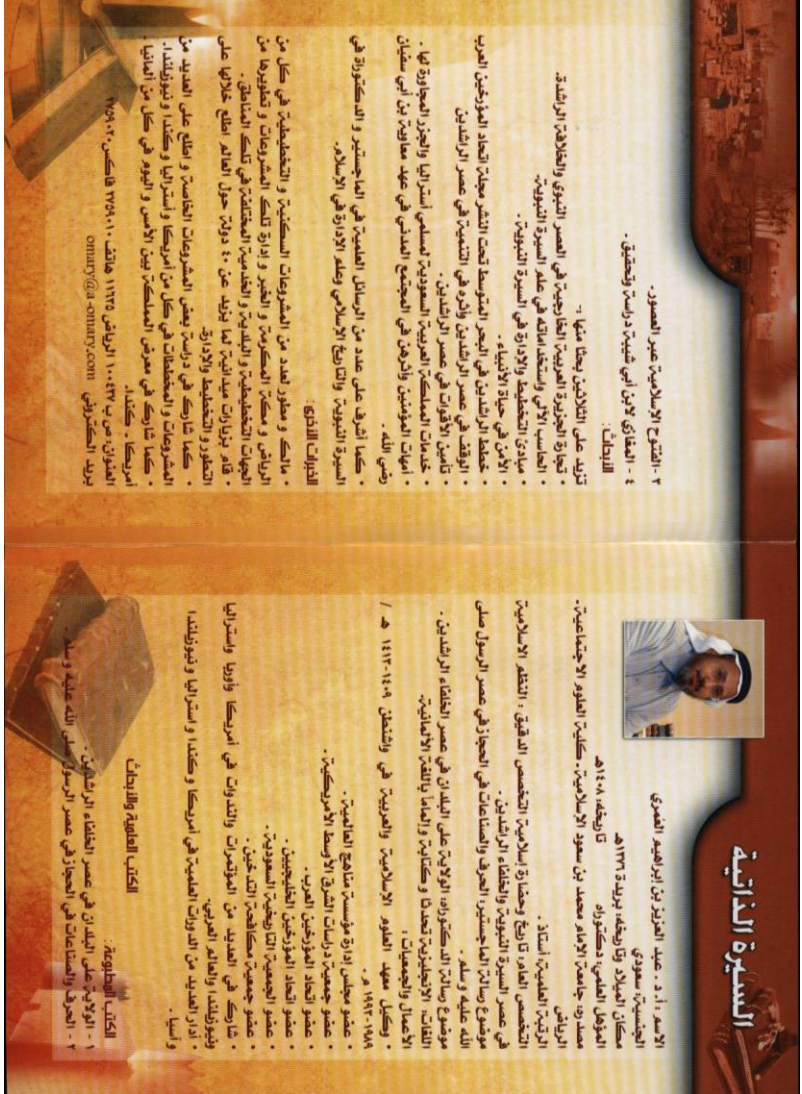 السيرة الذاتية
الاسم : أ. د . عبد العزيز بن ابراهيم العمري
الجنسية: سعودي
مكان الميلاد وتاريخه: بريدة ١٣٧٦هـ
المؤهل العلمي: دكتوراه تاريخه: ١٤٠٨هـ
مصدره: جامعة الإمام محمد بن سعود الإسلامية . كلية العلوم الاجتماعية .
الرياض
الرتبة العلمية: أستاذ .
التخصص العام: تاريخ وحضارة إسلامية التخصص الدقيق : النظم الاسلامية
في عصر السيرة النبوية والخلفاء الراشدين .
موضوع رسالة الماجستير: الحرف والصناعات في الحجاز في عصر الرسول صلى
الله عليه وسلم .
موضوع رسالة الدكتوراه: الولاية على البلدان في عصر الخلفاء الراشدين .
اللغات: الإنجليزية تحدثا وكتابة وإلماماً باللغة الألمانية.
الأعمال والجمعيات :
• وكيل معهد العلوم الإسلامية والعربية في واشنطن ١٤٠٩-١٤١٣ هـ /
١٩٨٩-١٩٩٣ م .
• عضو مجلس إدارة مؤسسة مناهج العالمية .
• عضو جمعية دراسات الشرق الأوسط الأمريكية .
• عضو اتحاد المؤرخين العرب .
• عضو اتحاد المؤرخين الخليجيين .
• عضو الجمعية التاريخية السعودية .
• عضو جمعية مكافحة التدخين .
• شارك في العديد من المؤتمرات والندوات في أمريكا وأوربا واستراليا
ونيوزيلندا والعالم العربي.
• أدار العديد من الدورات العلمية في أمريكا وكندا واستراليا ونيوزيلندا
و آسيا .
الكتب العلمية والأبحاث
الكتب المطبوعة:
١ - الولاية على البلدان في عصر الخلفاء الراشدين .
٢ - الحرف والصناعات في الحجاز في عصر الرسول صلى الله عليه وسلم .
٣ -الفتوح الإسلامية عبر العصور .
٤ - المغازي لابن أبي شيبة دراسة وتحقيق .
الأبحاث:
تزيد على الثلاثين بحثا منها :-
• تجارة الجزيرة العربية الخارجية في العصر النبوي والخلافة الراشدة.
• الحاسب الآلي واستخداماته في علم السيرة النبوية.
• مبادئ التخطيط والإدارة في السيرة النبوية .
• الأمن في حياة الأنبياء .
• خطط الراشدين في البحر المتوسط تحت النشر مجلة اتحاد المؤرخين العرب
• الوقف في عصر الراشدين وأثره في التنمية في عصر الراشدين
• تأمين الأقوات في عصر الراشدين .
• خدمات المملكة العربية السعودية لمسلمي أستراليا والجزر المجاورة لها .
• أمهات المؤمنين وأثرهن في المجتمع المدني في عهد معاوية بن أبي سفيان
رضي الله .
• كما أشرف على عدد من الرسائل العلمية في الماجستير و الدكتوراة في
السيرة النبوية والتاريخ الإسلامي وعلم الإدارة في الإسلام.
الخبرات الأخرى:
• مالك و مطور لعدد من المشروعات السكنية و التخطيطية في كل من
الرياض و مكة المكرمة و الخبر و إدارة تلك المشروعات و تطويرها من
الجهات التخطيطية و البلدية و الخدمية المختلفة في تلك المناطق .
• قام بزيارات ميدانية لما يزيد عن ٤٠ دولة حول العالم اطلع خلالها على
التطور و التخطيط والإدارة.
• كما شارك في دراسة بعض المشروعات الخاصة و اطلع على العديد من
المشروعات و المخططات في كل من أمريكا و أستراليا و كندا و نيوزيلندا.
• كما شارك في معرض المملكة بين الأمس و اليوم في كل من ألمانيا .
أمريكا . كندا.
العنوان: ص ب ١٠٠٤٣٧ الرياض ١١٦٣٥ هاتف ٢٧٥٩٠١٠ فاكس٢٧٥٩٠٢٠
بريد الكتروني omary@a-omary.com